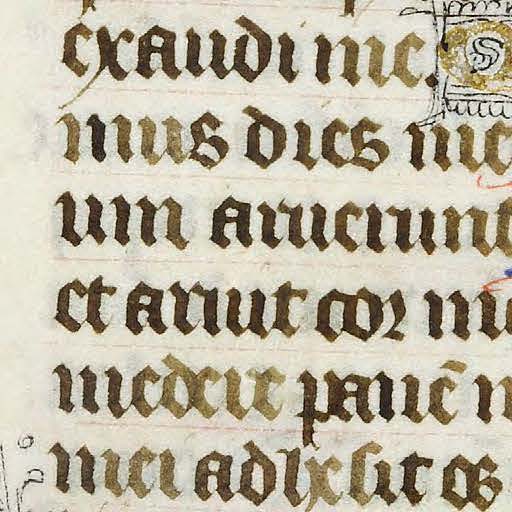 exaudi me. S
mus dies me
um aruerunt
et aruit cor m
medere panē m
mei adhesit os